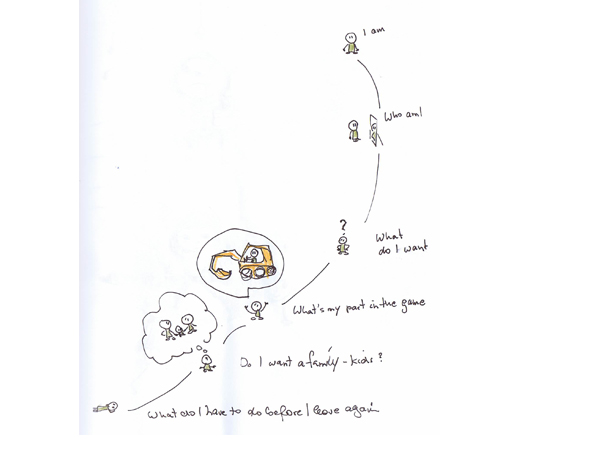 I am
Who am I
?
What
do I want
What's my part in the game
Do I want a family - kids ?
What do I have to do before I leave again